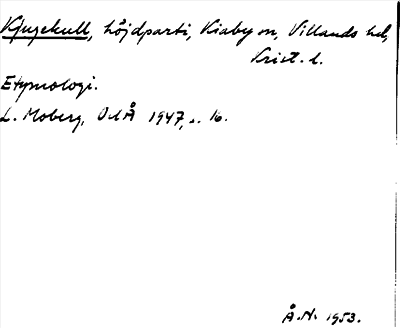 Kjugekull, höjdparti, Kiaby sn, Villands hd,
Krist. l.
Etymologi.
L. Moberg, OdÅ 1947, s. 16.
Å. N. 1953.